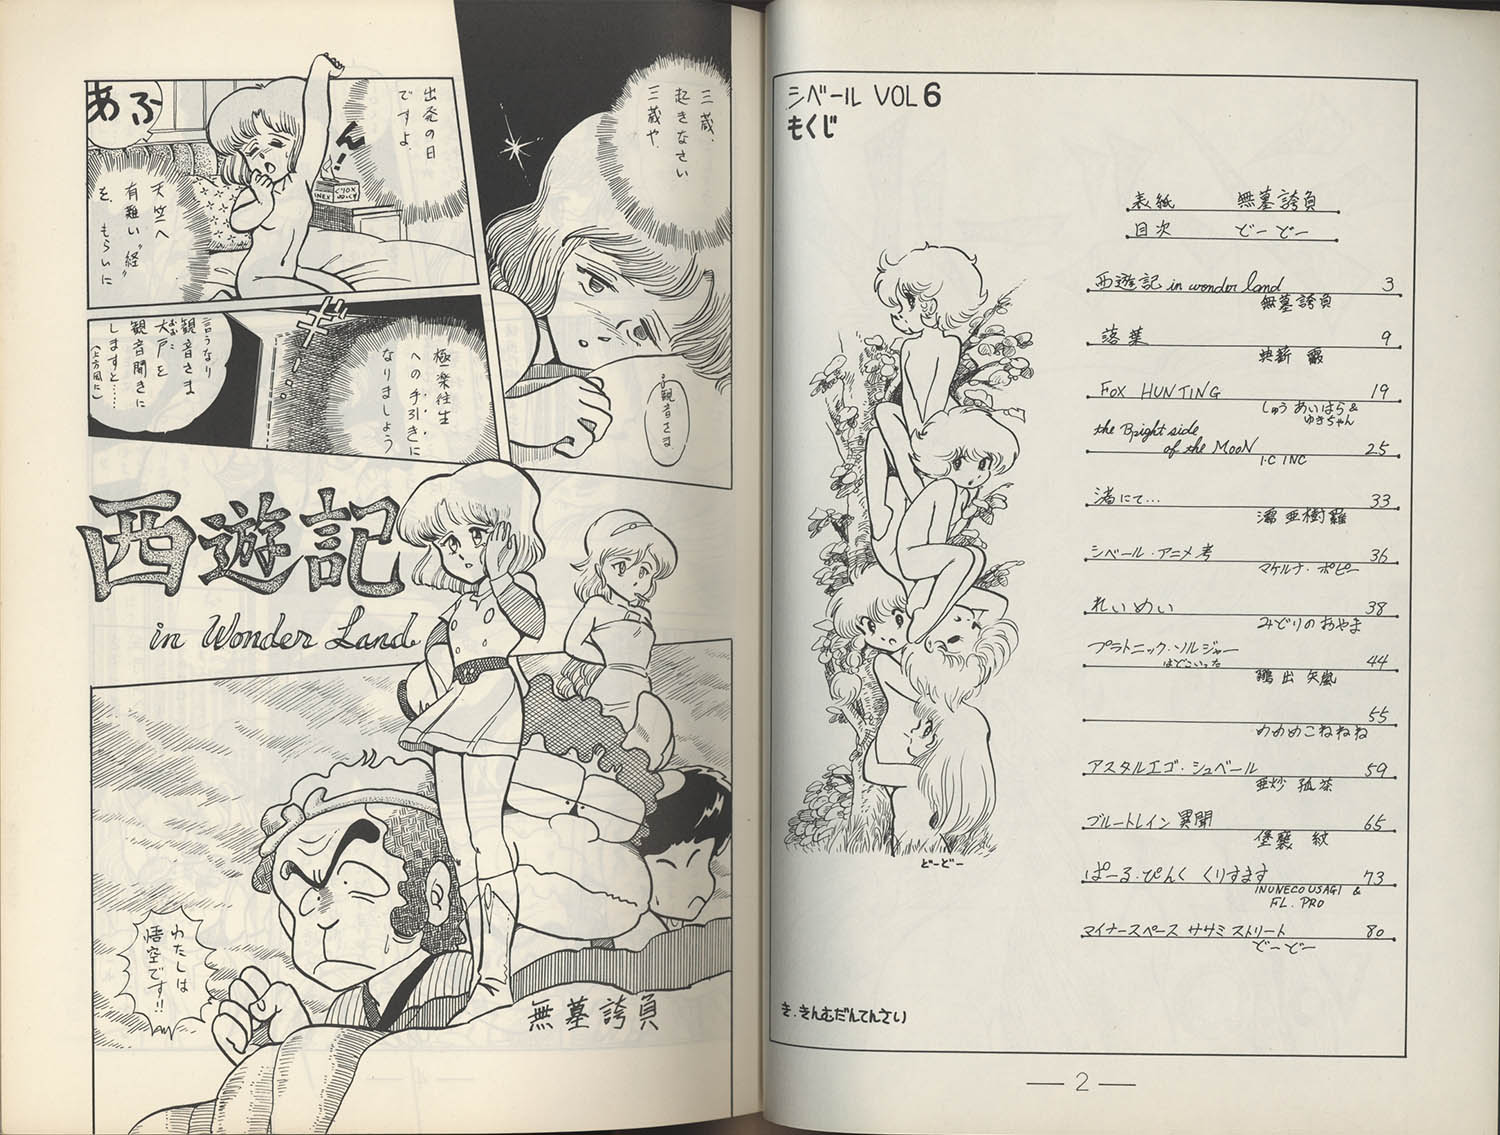 シベール VOL 6
もくじ
表紙 無墓誇負
目次 どーどー
西遊記 in wonder land 3
無墓誇負
落葉 9
FOX HUNTING 19
しゅう あいはら &
ゆきちゃん
the Bright side
of the MooN 25
I・C INC
渚にて… 33
亜樹羅
シベール・アニメ考 36
マケルナ・ポピー
れいめい 38
みどりの あやま
プラトニック・ソルジャー
はどこいった 44
鵬出 矢嵐
55
めめめこねねね
アスタルエゴ・シュベール 59
亜炒 孤茶
ブルートレイン異聞 65
ぱーる・ぴんく くりすます 73
INUNECOUSAGI &
FL. PRO
マイナースペース ササミ ストリート 80
どーどー
どーどー
き・きんむだんてんさい
— 2 —
三蔵、
起きなさい
三蔵や、
観音さま
出発の日
ですよ、
あふ
ん!
天竺へ
有難い“経”
を、もらいに
極楽往生
への手引きに
なりましょう
ギギ…
言うなり
観音さま
大戸を
観音開きに
しますと……
(上方風に)
西遊記
in Wonder Land
わたしは
悟空です!!
無墓誇負